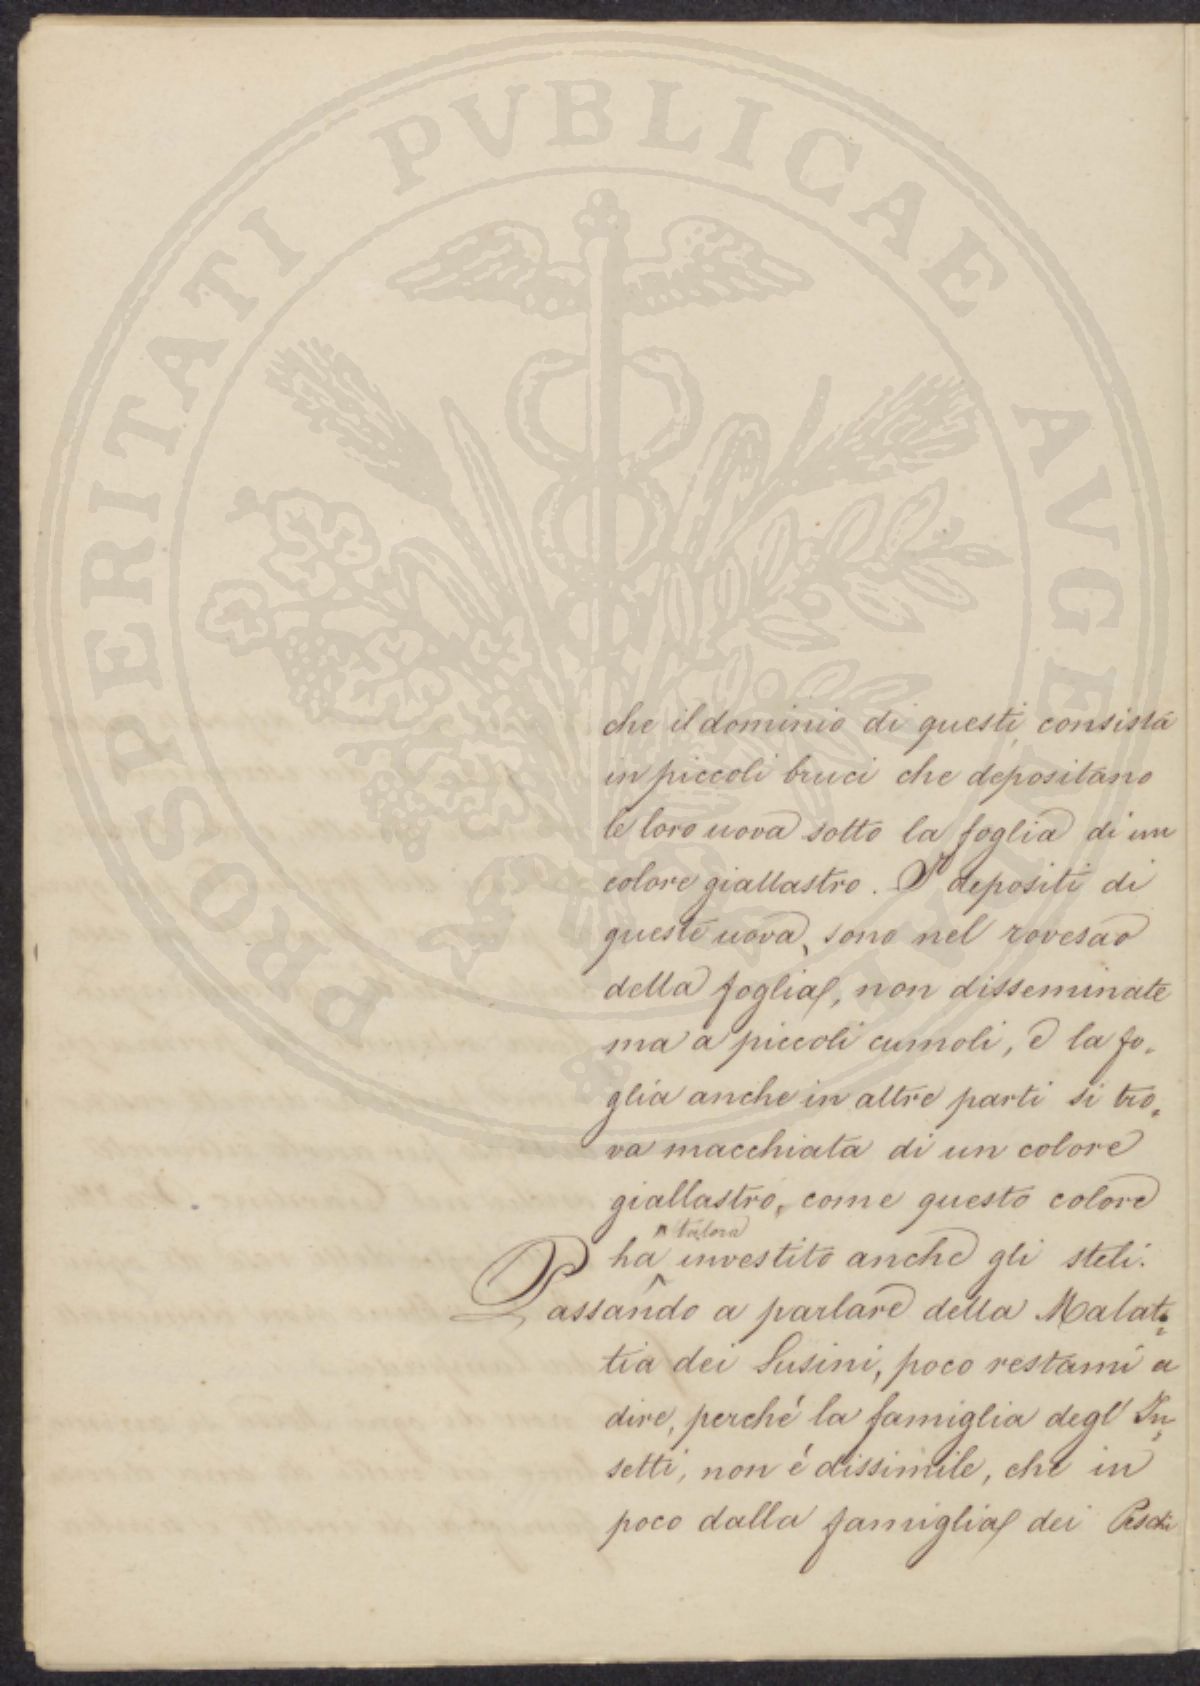 PROSPERITATI PVBLICAE AVGENDAE
che il dominio di questi consista
in piccoli bruci che depositano
le loro uova sotto la foglia di un
colore giallastro. I depositi di
queste uova, sono nel rovescio
della foglia, non disseminate
ma a piccoli cumoli, e la fo„
glia anche in altre parti si tro„
va macchiata di un colore
giallastro, come questo colore
talora
ha investito anche gli steli.
Passando a parlare della Malat„
tia dei Susini, poco restami a
dire, perché la famiglia degl' In„
setti, non é dissimile, che in
poco dalla famiglia dei Peschi